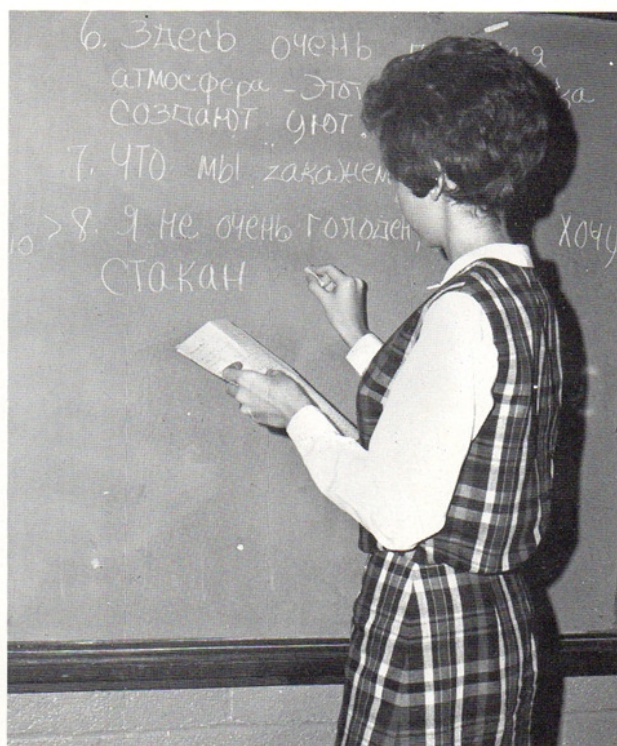 6. Здесь очень
атмосфера - Этот
создают уют.
7. ЧТО мы закажем
> 8. Я не очень голоден, хочу
СТАКАН